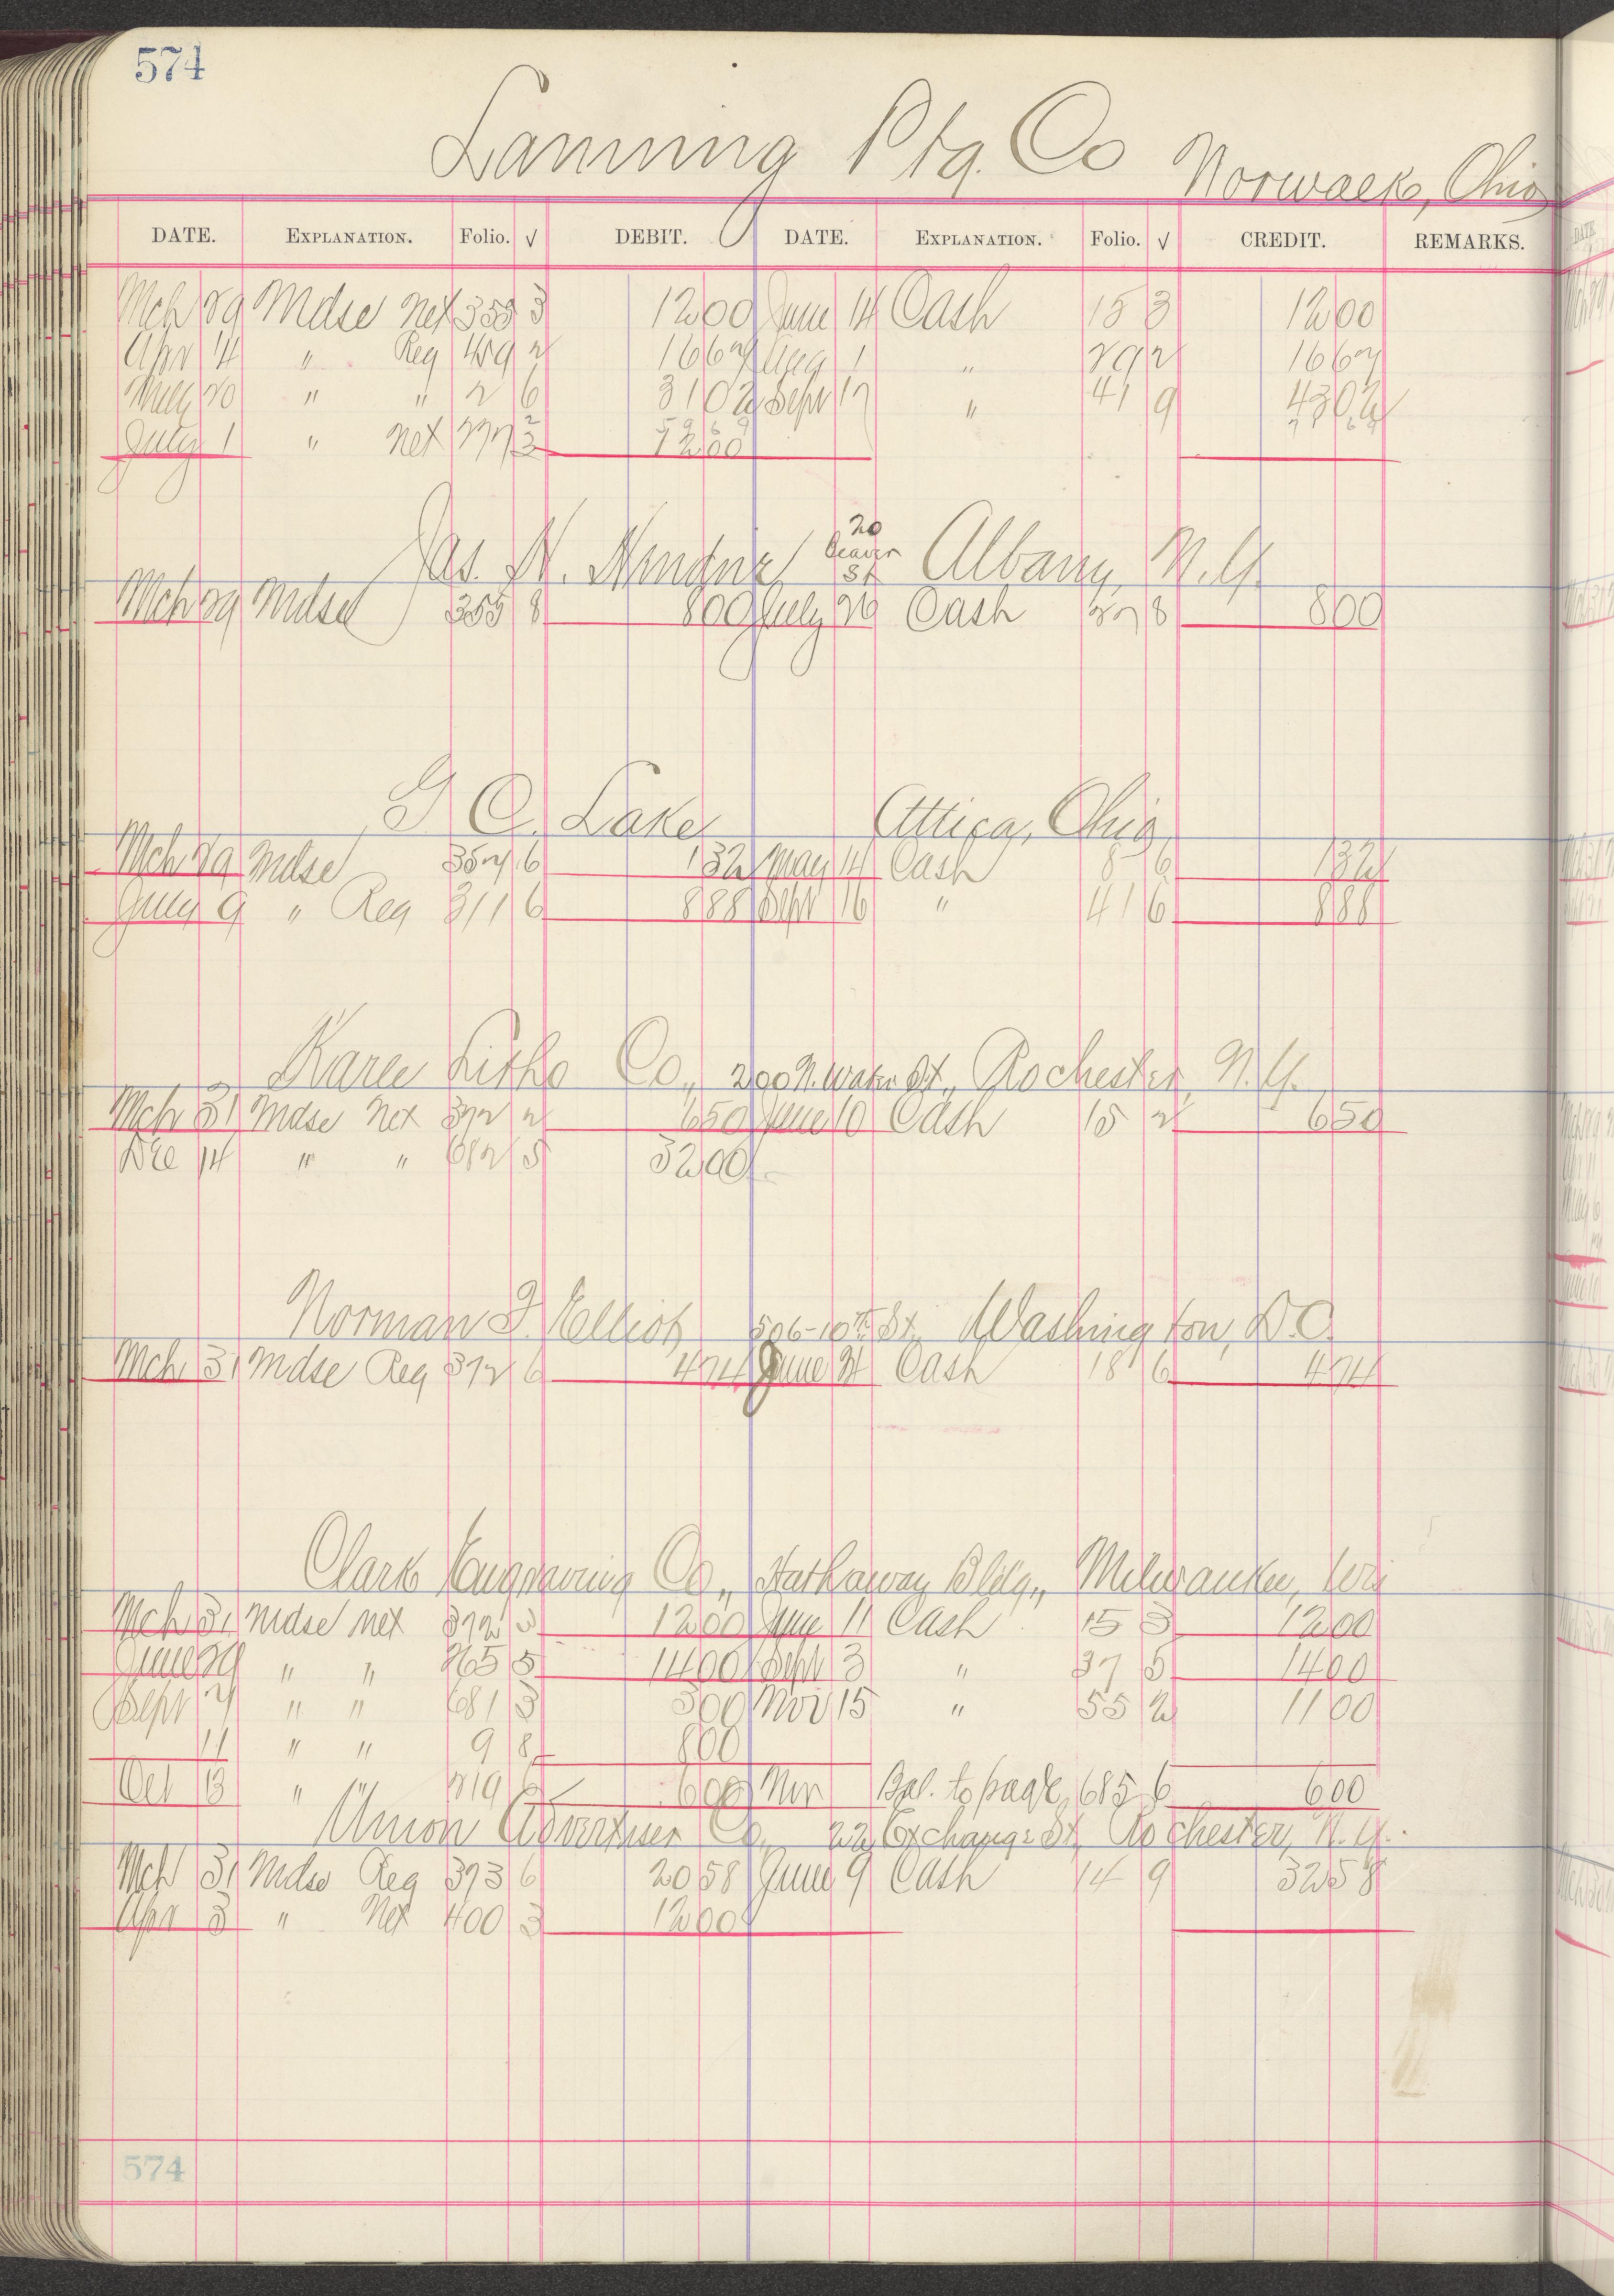 574
Lanning Ptg. Co Norwalk, Ohio
DATE. EXPLANATION. Folio. √ DEBIT. DATE. EXPLANATION. Folio. √ CREDIT. REMARKS.
Mch 29 Mdse Net 355 3 12 00 June 14 Cash 15 3 12 00
Apr 4 " Reg 459 2 16 67 Aug 1 " 29 2 16 67
May 20 " " 2 6 31 02 Sept 17 " 41 9 43 02
July 1 " Net 277 3 12 00
Jas. N. 20 Beaver St Albany, N.Y.
Mch 29 Mdse 355 8 8 00 July 26 Cash 27 8 8 00
G C. Lake Attica, Ohio
Mch 29 Mdse 357 6 1 32 May 14 Cash 8 6 1 32
July 9 " Reg 311 6 8 88 Sept 16 " 41 6 8 88
Karle Litho Co., 200 N. Water St., Rochester, N.Y.
Mch 31 Mdse Net 372 2 6 50 June 10 Cash 15 2 6 50
Dec 14 " " 682 5 32 00
Norman T. Elliott, 506-10th St., Washington, D.C.
Mch 31 Mdse Reg 372 6 4 74 June 24 Cash 18 6 4 74
Clark Engraving Co., Hathaway Bldg., Milwaukee, Wis
Mch 31 Mdse Net 372 3 12 00 June 11 Cash 15 3 12 00
June 29 " " 265 5 14 00 Sept 3 " 37 5 14 00
Sept 7 " " 681 3 3 00 Nov 15 " 55 2 11 00
11 " " 9 8 8 00
Oct 13 " " 219 6 6 00 Nov Bal. to page 685 6 6 00
Union Advertiser Co., 22 Exchange St, Rochester, N.Y.
Mch 31 Mdse Reg 373 6 20 58 June 9 Cash 14 9 32 58
Apr 3 " Net 400 3 12 00
574